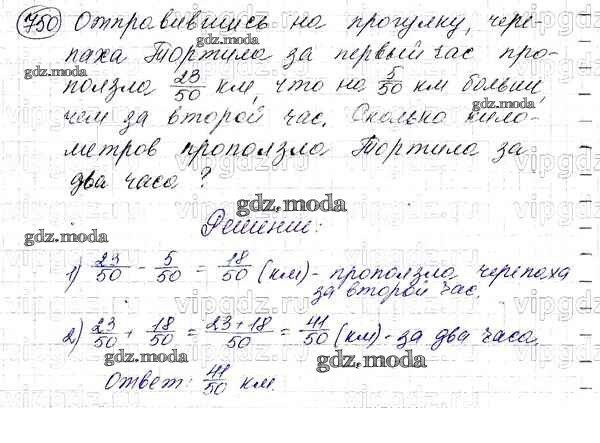 750 Отправившись на прогулку, чере-
паха Тортила за первый час про-
gdz.moda
gdz.moda
ползла 23/50 км, что на 5/50 км больше
gdz.moda
gdz.moda
чем за второй час. Сколько кило-
метров проползла Тортила за
два часа?
gdz.moda
gdz.moda
Решение:
1) 23/50 - 5/50 = 18/50 (км) - проползла черепаха
за второй час.
2) 23/50 + 18/50 = 23+18/50 = 41/50 (км) - за два часа.
gdz.moda
gdz.moda
Ответ: 41/50 км.
gdz.moda
vipgdz.ru